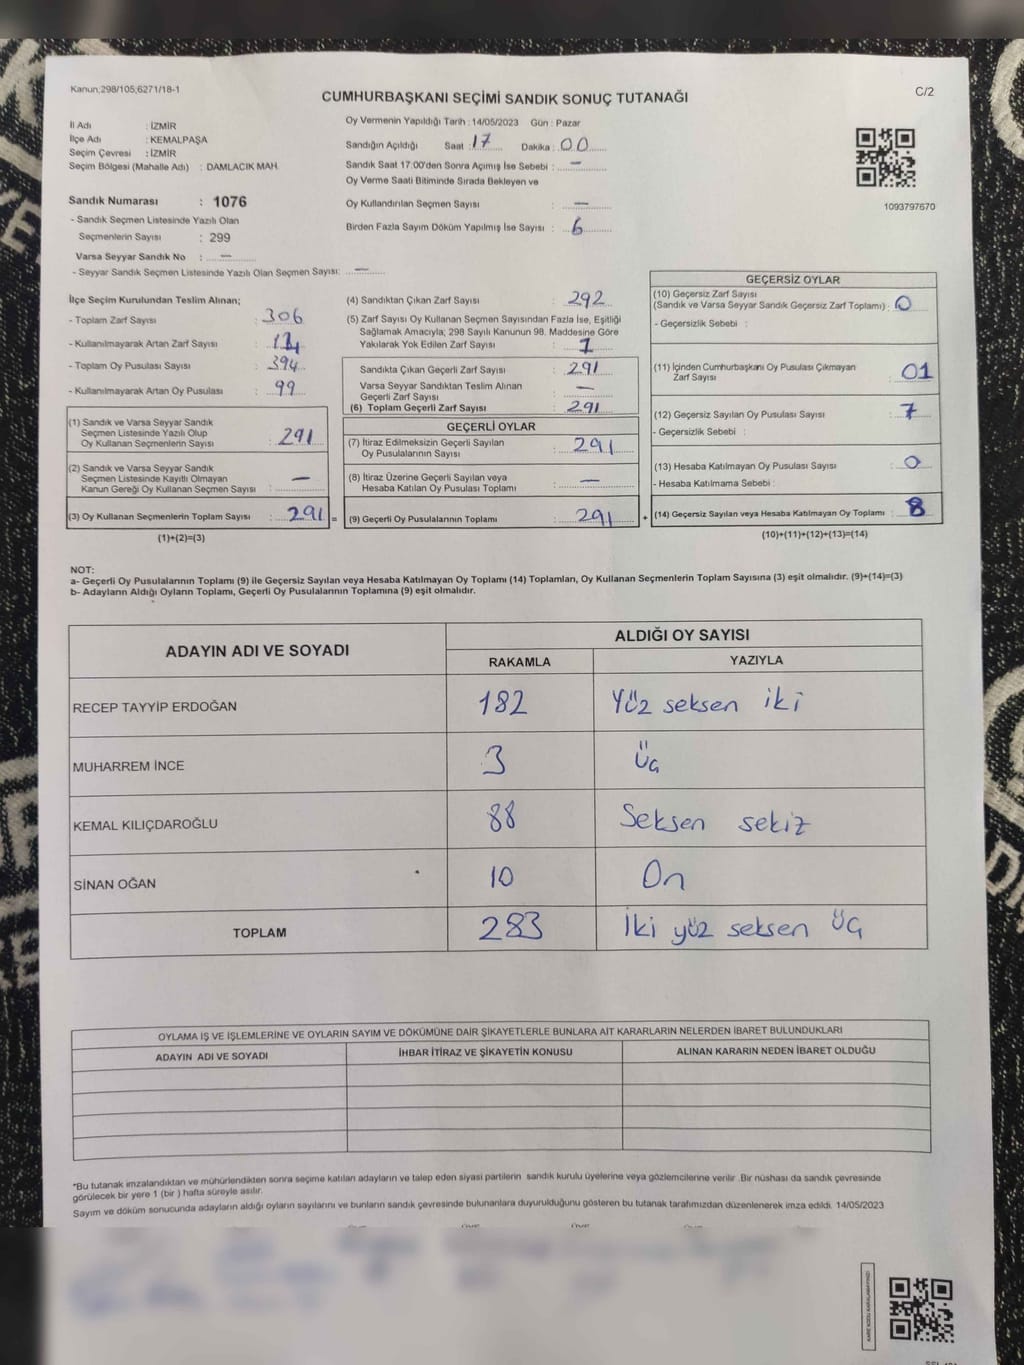 Kanun;298/105;6271/18-1
CUMHURBAŞKANI SEÇİMİ SANDIK SONUÇ TUTANAĞI
C/2
İl Adı : İZMİR
İlçe Adı : KEMALPAŞA
Seçim Çevresi : İZMİR
Seçim Bölgesi (Mahalle Adı) : DAMLACIK MAH.
Sandık Numarası : 1076
- Sandık Seçmen Listesinde Yazılı Olan
Seçmenlerin Sayısı : 299
Varsa Seyyar Sandık No : —
- Seyyar Sandık Seçmen Listesinde Yazılı Olan Seçmen Sayısı: —
Oy Vermenin Yapıldığı Tarih : 14/05/2023 Gün : Pazar
Sandığın Açıldığı Saat : 17 Dakika : 00
Sandık Saat 17:00'den Sonra Açımış İse Sebebi : —
Oy Verme Saati Bitiminde Sırada Bekleyen ve
Oy Kullandırılan Seçmen Sayısı : —
Birden Fazla Sayım Döküm Yapılmış İse Sayısı : 6
1093797670
İlçe Seçim Kurulundan Teslim Alınan;
- Toplam Zarf Sayısı : 306
- Kullanılmayarak Artan Zarf Sayısı :
- Toplam Oy Pusulası Sayısı : 394
- Kullanılmayarak Artan Oy Pusulası : 99
(1) Sandık ve Varsa Seyyar Sandık
Seçmen Listesinde Yazılı Olup
Oy Kullanan Seçmenlerin Sayısı : 291
(2) Sandık ve Varsa Seyyar Sandık
Seçmen Listesinde Kayıtlı Olmayan
Kanun Gereği Oy Kullanan Seçmen Sayısı : —
(3) Oy Kullanan Seçmenlerin Toplam Sayısı : 291 =
(1)+(2)=(3)
(4) Sandıktan Çıkan Zarf Sayısı : 292
(5) Zarf Sayısı Oy Kullanan Seçmen Sayısından Fazla İse, Eşitliği
Sağlamak Amacıyla; 298 Sayılı Kanunun 98. Maddesine Göre
Yakılarak Yok Edilen Zarf Sayısı : 1
Sandıkta Çıkan Geçerli Zarf Sayısı : 291
Varsa Seyyar Sandıktan Teslim Alınan
Geçerli Zarf Sayısı : —
(6) Toplam Geçerli Zarf Sayısı : 291
GEÇERLİ OYLAR
(7) İtiraz Edilmeksizin Geçerli Sayılan
Oy Pusulalarının Sayısı : 291
(8) İtiraz Üzerine Geçerli Sayılan veya
Hesaba Katılan Oy Pusulası Toplamı : —
(9) Geçerli Oy Pusulalarının Toplamı : 291 +
GEÇERSİZ OYLAR
(10) Geçersiz Zarf Sayısı
(Sandık ve Varsa Seyyar Sandık Geçersiz Zarf Toplamı) : 0
- Geçersizlik Sebebi :
(11) İçinden Cumhurbaşkanı Oy Pusulası Çıkmayan
Zarf Sayısı : 01
(12) Geçersiz Sayılan Oy Pusulası Sayısı : 7
- Geçersizlik Sebebi :
(13) Hesaba Katılmayan Oy Pusulası Sayısı : 0
- Hesaba Katılmama Sebebi :
(14) Geçersiz Sayılan veya Hesaba Katılmayan Oy Toplamı : 8
(10)+(11)+(12)+(13)=(14)
NOT:
a- Geçerli Oy Pusulalarının Toplamı (9) ile Geçersiz Sayılan veya Hesaba Katılmayan Oy Toplamı (14) Toplamları, Oy Kullanan Seçmenlerin Toplam Sayısına (3) eşit olmalıdır. (9)+(14)=(3)
b- Adayların Aldığı Oyların Toplamı, Geçerli Oy Pusulalarının Toplamına (9) eşit olmalıdır.
ADAYIN ADI VE SOYADI
ALDIĞI OY SAYISI
RAKAMLA YAZIYLA
RECEP TAYYİP ERDOĞAN 182 Yüz seksen iki
MUHARREM İNCE 3 Üç
KEMAL KILIÇDAROĞLU 88 Seksen sekiz
SİNAN OĞAN 10 On
TOPLAM 283 İki yüz seksen üç
OYLAMA İŞ VE İŞLEMLERİNE VE OYLARIN SAYIM VE DÖKÜMÜNE DAİR ŞİKAYETLERLE BUNLARA AİT KARARLARIN NELERDEN İBARET BULUNDUKLARI
ADAYIN ADI VE SOYADI İHBAR İTİRAZ VE ŞİKAYETİN KONUSU ALINAN KARARIN NEDEN İBARET OLDUĞU
*Bu tutanak imzalandıktan ve mühürlendikten sonra seçime katılan adayların ve talep eden siyasi partilerin sandık kurulu üyelerine veya gözlemcilerine verilir .Bir nüshası da sandık çevresinde
görülecek bir yere 1 (bir ) hafta süreyle asılır.
Sayım ve döküm sonucunda adayların aldığı oyların sayılarını ve bunların sandık çevresinde bulunanlara duyurulduğunu gösteren bu tutanak tarafımızdan düzenlenerek imza edildi. 14/05/2023